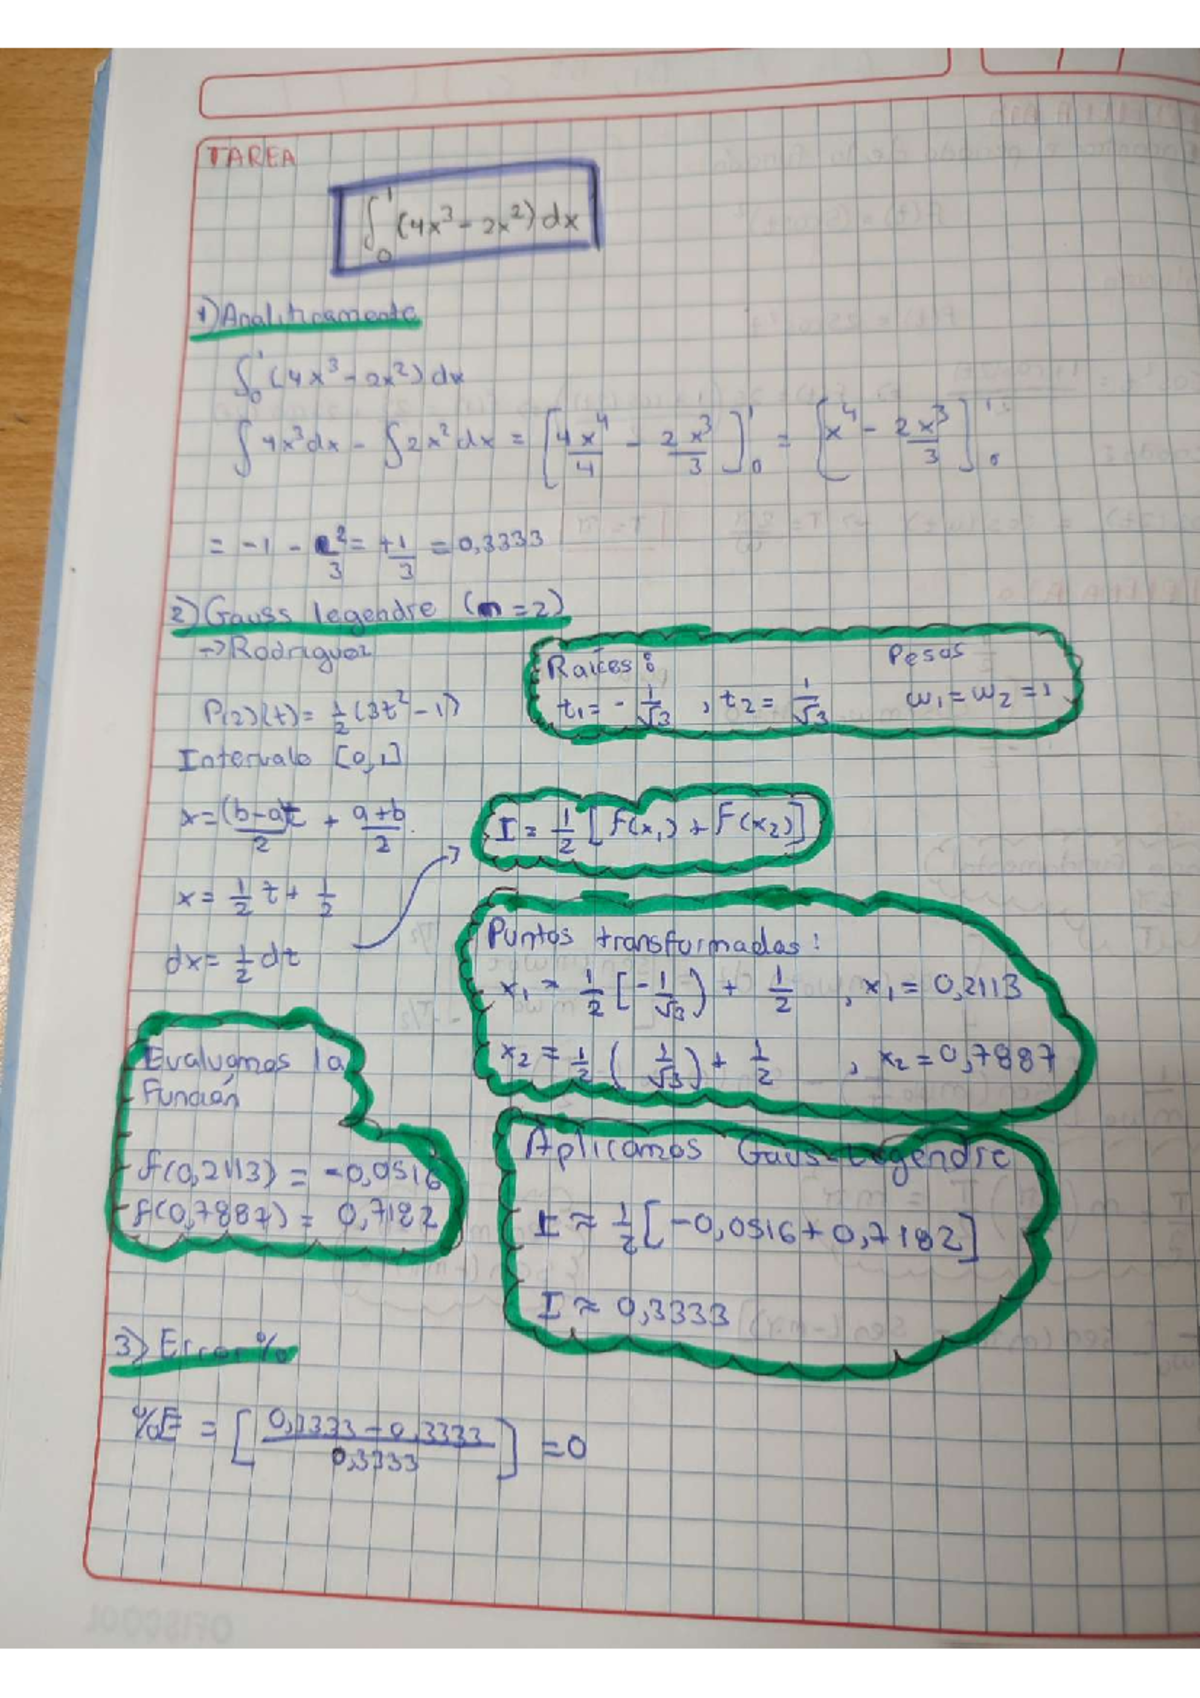 TAREA
∫₀¹ (4x³ - 2x²) dx
1) Analiticamente
∫₀¹ (4x³ - 2x²) dx
∫ 4x³dx - ∫ 2x² dx = [4x⁴/4 - 2x³/3]₀¹ = [x⁴ - 2x³/3]₀¹
= -1 - 2/3 = +1/3 = 0,3333
2) Gauss legendre (n=2)
→ Rodriguez
Raíces: Pesos
t₁ = - 1/√3 , t₂ = 1/√3 w₁ = w₂ = 1
P(2)(t) = 1/2 (3t² - 1)
Intervalo [0,1]
x = (b-a)t/2 + a+b/2
I = 1/2 [f(x₁) + f(x₂)]
x = 1/2 t + 1/2
dx = 1/2 dt
Puntos transformados:
x₁ = 1/2 [-1/√3) + 1/2 , x₁ = 0,2113
x₂ = 1/2 (1/√3) + 1/2 , x₂ = 0,7887
Evaluamos la
Función
f(0,2113) = -0,0516
f(0,7887) = 0,7182
Aplicamos Gauss-Legendre
I ≈ 1/2 [-0,0516 + 0,7182]
I ≈ 0,3333
3) Error %
%E = [0,3333 - 0,3333 / 0,3333] = 0